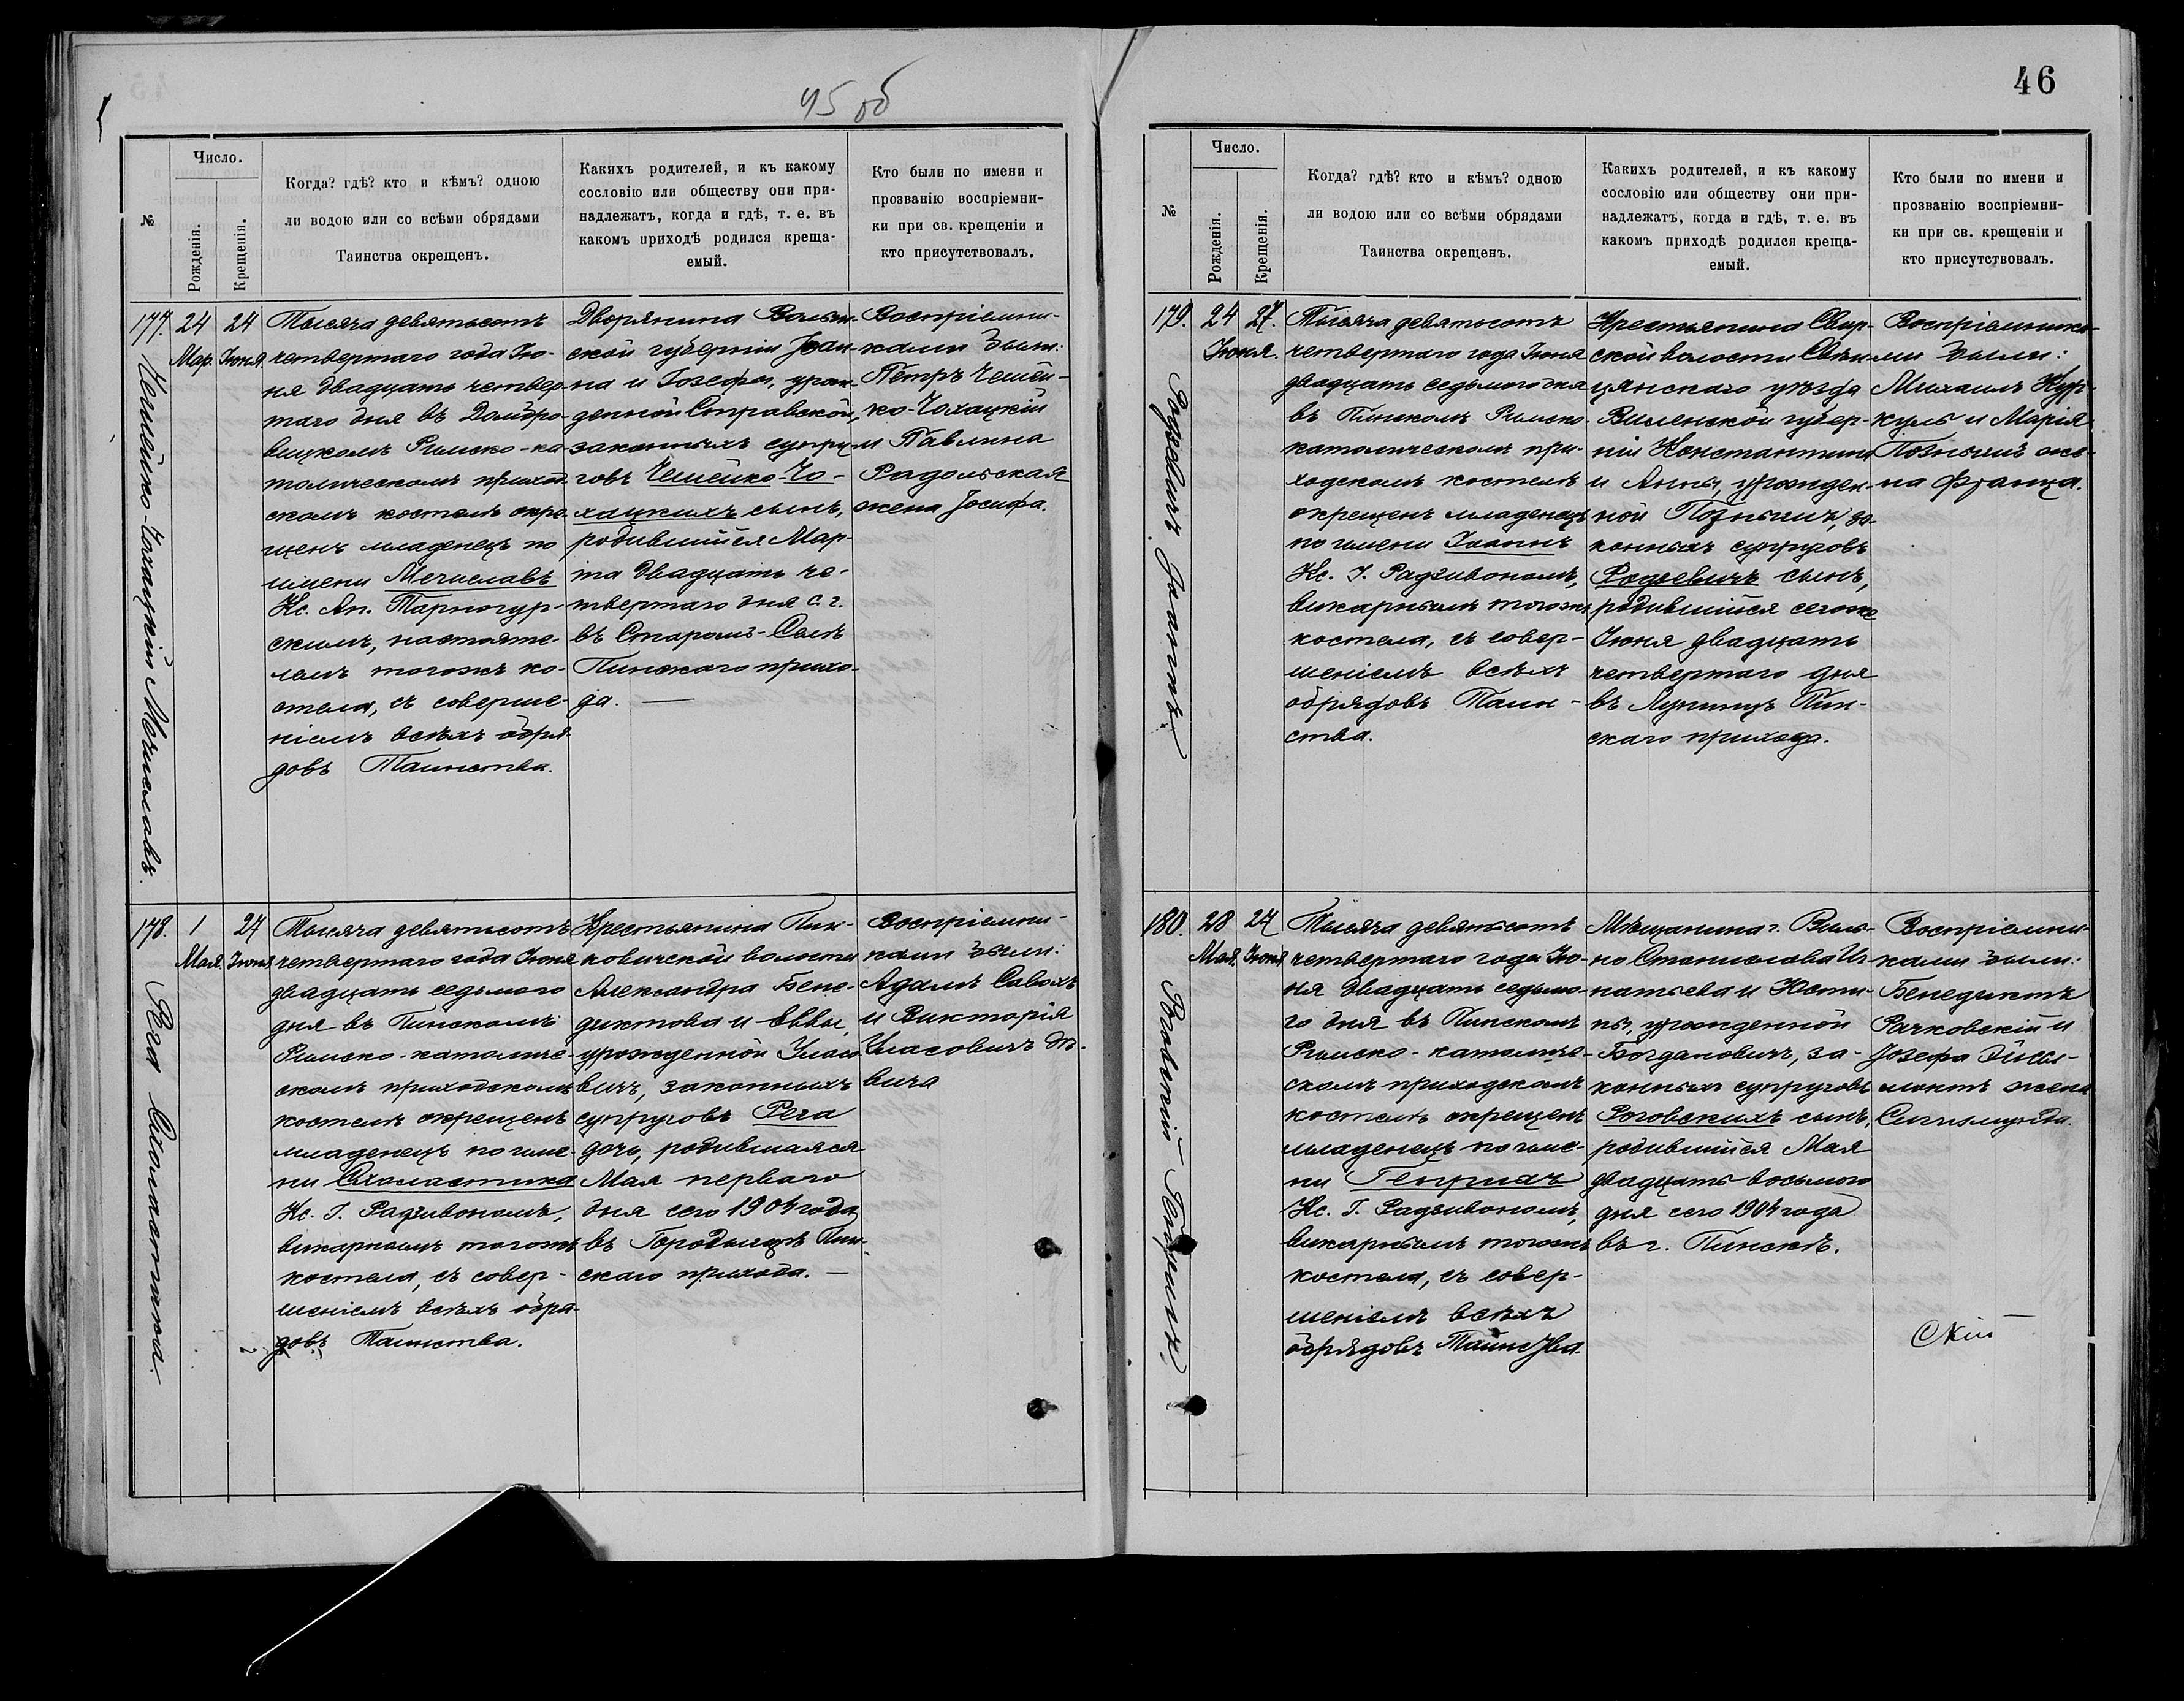 45 об
№
Число.
Рожденія.
Крещенія.
Когда? гдѣ? кто и кѣмъ? одною
ли водою или со всѣми обрядами
Таинства окрещенъ.
Какихъ родителей, и къ какому
сословію или обществу они при-
надлежатъ, когда и гдѣ, т. е. въ
какомъ приходѣ родился креща-
емый.
Кто были по имени и
прозванію воспріемни-
ки при св. крещеніи и
кто присутствовалъ.
177.
Чешейко-Чохацкій Мечиславъ.
24
Мар.
24
Іюня.
Тысяча девятьсотъ
четвертаго года Ію-
ня двадцать четвер-
таго дня въ Домбро-
вицкомъ Римско-ка-
толическомъ приход-
скомъ костелѣ окре-
щенъ младенецъ по
имени Мечиславъ
Кс. Ан. Тарногур-
скимъ, настояте-
лемъ тогожъ ко-
стела, съ соверше-
ніемъ всѣхъ обря-
довъ Таинства.
Дворянина Волын-
ской губерніи Іоан-
на и Іозефы, урож-
денной
законныхъ супру-
говъ Чешейко-Чо-
хацкихъ сынъ,
родившійся Мар-
та двадцать че-
твертаго дня с. г.
въ Старомъ-Селѣ
Пинскаго прихо-
да. —
Воспріемни-
ками были:
Петръ Чешей-
ко-Чохацкій
и Павлина
Радольская
жена Іосифа.
178.
Рега Схоластика.
1
Мая.
27
Іюня
Тысяча девятьсотъ
четвертаго года Іюня
двадцать седьмого
дня въ Пинскомъ
Римско-католиче-
скомъ приходскомъ
костелѣ окрещенъ
младенецъ по име-
ни Схоластика
Кс. І. Радзивономъ,
викарнымъ тогожъ
костела, съ совер-
шеніемъ всѣхъ обря-
довъ Таинства.
Крестьянина Пин-
ковичской волости
Александра Бене-
диктова и Еввы,
урожденной Уласо-
вичъ, законныхъ
супруговъ Рега
дочь, родившаяся
Мая перваго
дня сего 1904 года
въ Городищѣ Пин-
скаго прихода. —
Воспріемни-
ками были:
Адамъ
и Викторія
Уласовичъ дѣ-
вица
46
№
Число.
Рожденія.
Крещенія.
Когда? гдѣ? кто и кѣмъ? одною
ли водою или со всѣми обрядами
Таинства окрещенъ.
Какихъ родителей, и къ какому
сословію или обществу они при-
надлежатъ, когда и гдѣ, т. е. въ
какомъ приходѣ родился креща-
емый.
Кто были по имени и
прозванію воспріемни-
ки при св. крещеніи и
кто присутствовалъ.
179.
Родзевичъ Іоаннъ.
24
Іюня.
27.
Тысяча девятьсотъ
четвертаго года Іюня
двадцать седьмого дня
въ Пинскомъ Римско-
католическомъ при-
ходскомъ костелѣ
окрещенъ младенецъ
по имени Іоаннъ
Кс. І. Радзивономъ,
викарнымъ тогожъ
костела, съ совер-
шеніемъ всѣхъ
обрядовъ Таин-
ства.
Крестьянина Свир-
ской волости Свѣн-
цянскаго уѣзда
Виленской губер-
ніи Константина
и Анны, урожден-
ной Познякъ, за-
конныхъ супруговъ
Родзевичъ сынъ,
родившійся сегоже
Іюня двадцать
четвертаго дня
въ Лунинцѣ Пин-
скаго прихода.
Воспріемника-
ми были:
Михаилъ Кур-
куль и Марія
Познякъ же-
на Франца.
180.
Роговскій Генрихъ.
28
Мая.
27
Іюня
Тысяча девятьсотъ
четвертаго года Ію-
ня двадцать седьмо-
го дня въ Пинскомъ
Римско-католиче-
скомъ приходскомъ
костелѣ окрещенъ
младенецъ по име-
ни Генрихъ
Кс. І. Радзивономъ,
викарнымъ тогожъ
костела, съ совер-
шеніемъ всѣхъ
обрядовъ Таинства.
Мѣщанина г. Виль-
но Станислава Иг-
натьева и Юсти-
ны, урожденной
Богдановичъ, за-
конныхъ супруговъ
Роговскихъ сынъ,
родившійся Мая
двадцать восьмого
дня сего 1904 года
въ г. Пинскѣ.
Воспріемни-
ками были:
Бенедиктъ
Рачковскій и
Іозефа
жена
Сигизмунда.
скій